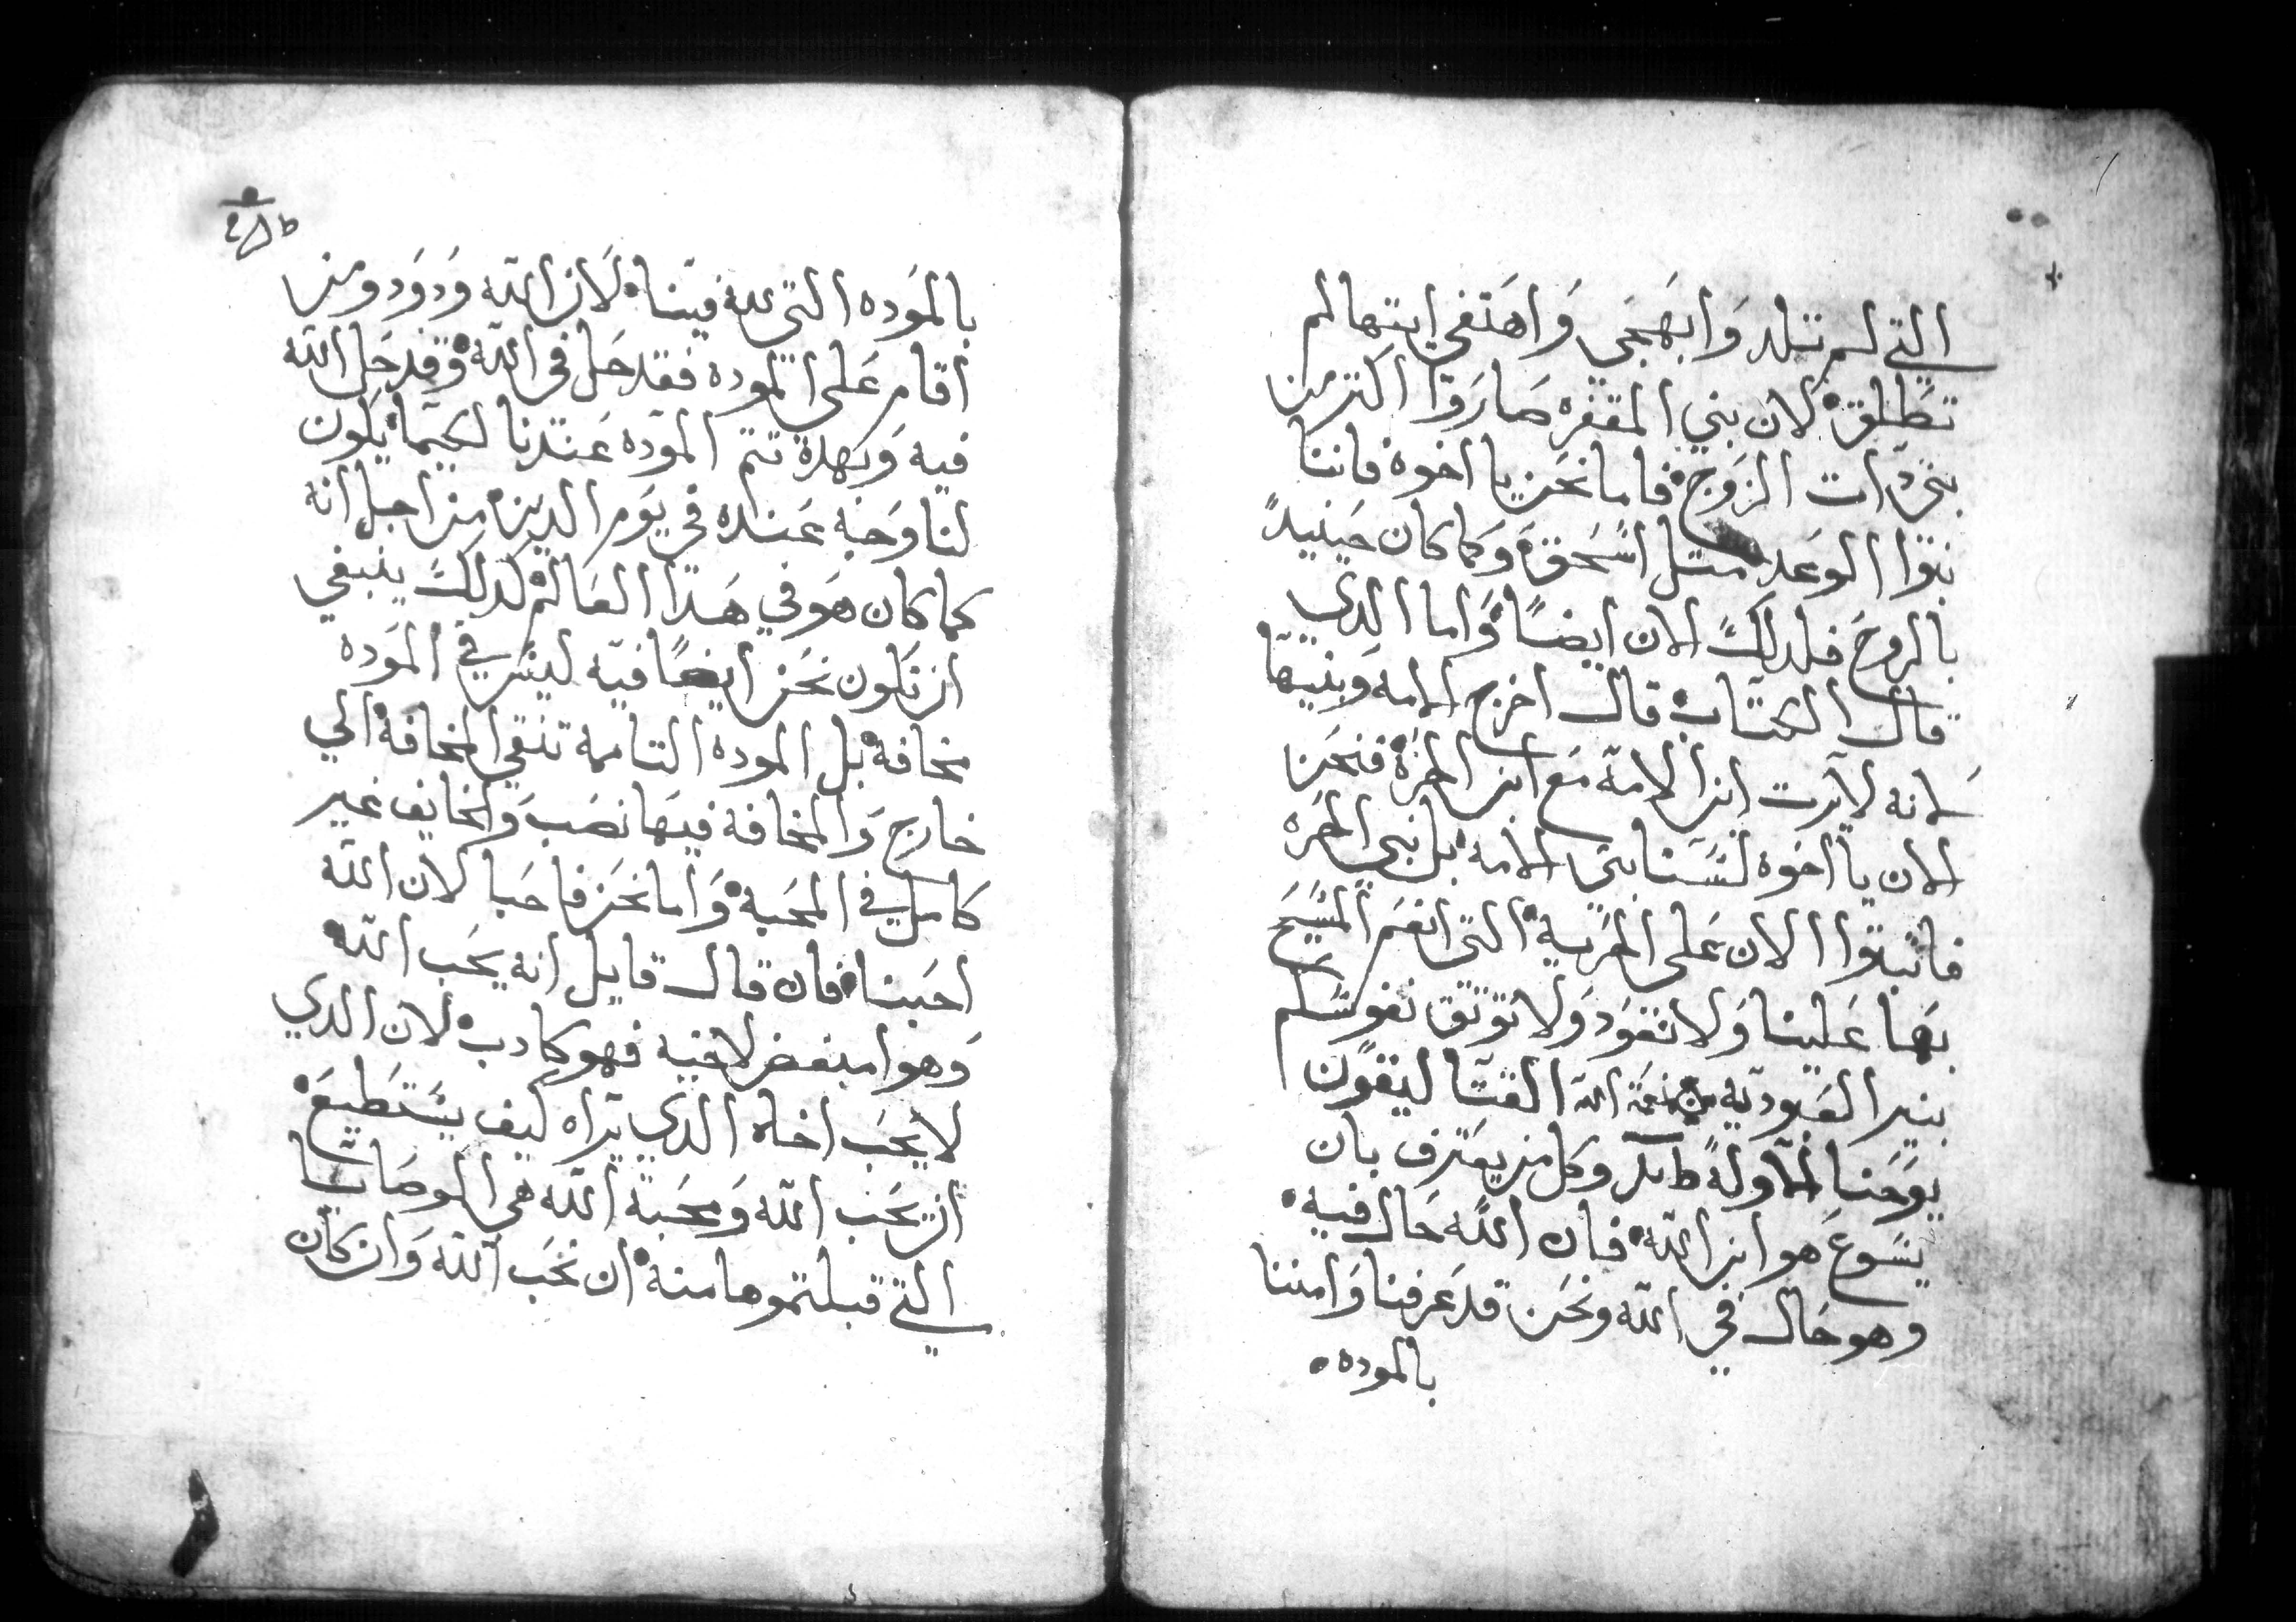 التي لم تلد وابهجي واهتفي ايتها لم
تطلق لان بني المقفره صاروا اكتر من
بني دات الزوج فاما نحن يا اخوة فاننا
بنوا الوعد متل اسحق وكما كان حينيدً
بالروح فلدلك الان ايضاً واما الدي
قال الكتاب قال اخرج الامه وبنيها
لانه لا يرت ابن الامة مع ابن الحرة فنحن
الان يا اخوه لسنا بني الامه بل بني الحره
فاتبتوا الان على الحرية التي انعم المسيح
بها علينا ولا نعود ولا توتق نفوسكم
بنير العبودية من نعمة الله القتاليقون
يوحنا الاوله وكل من يعترف بان
يسوع هو ابن الله فان الله حال فيه
وهو حال في الله ونحن قد عرفنا وامننا
بالموده
بالموده التي لله فينا لان الله ودود ومن
اقام على الموده فقد حل في الله وقد حل الله
فيه وبهدة تتم الموده عندنا لكيما يكون
لنا وجه عنده في يوم الدين من اجل انه
كما كان هو في هدا العالم كدلك ينبغي
ان نكون نحن ايضا فيه ليس في الموده
مخافة بل الموده التامة تنفي المخافة الي
خارج والمخافة فيها نصب والخايف غير
كامل في المحبة واما نحن فاحبا لان الله
احبنا فان قال قايل انه يحب الله
وهوا مبغض لاخيه فهو كادب لان الدي
لا يحب اخاه الدي يراه كيف يستطيع
ان يحب الله ومحبة الله هي الوصايا
التي قبلتموها منه ان نحب الله وان كان